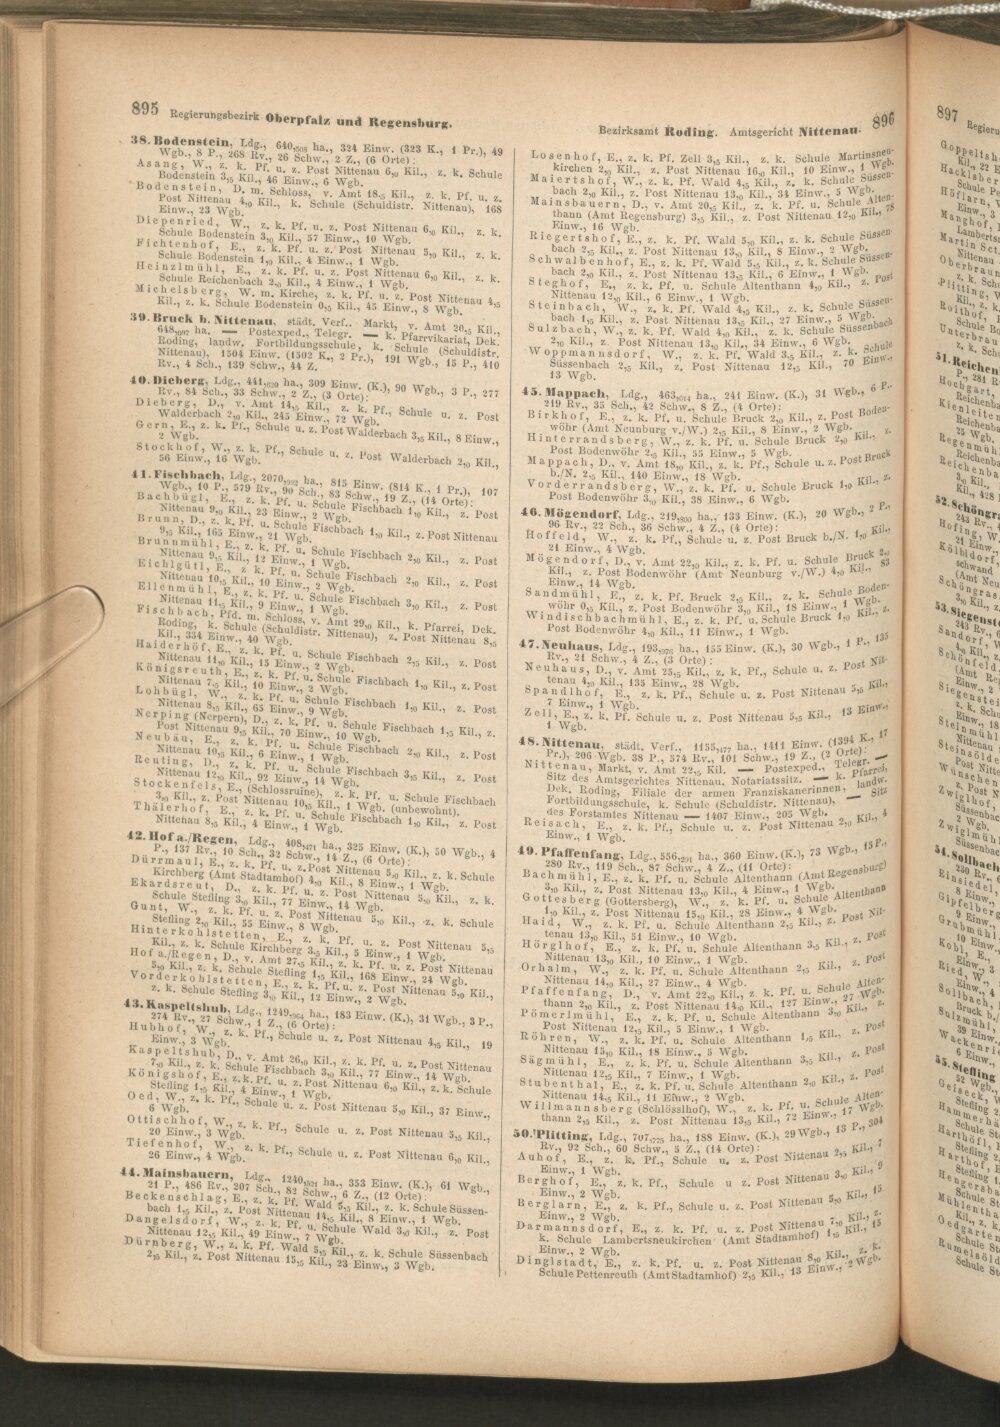 895 Regierungsbezirk Oberpfalz und Regensburg.
38. Bodenstein, Ldg., 640,505 ha., 324 Einw. (323 K., 1 Pr.), 49
Wgb., 8 P., 268 Rv., 26 Schw., 2 Z., (6 Orte):
Asang, W., z. k. Pf. u. z. Post Nittenau 6,0 Kil., z. k. Schule
Bodenstein 3,5 Kil., 46 Einw., 6 Wgb.
Bodenstein, D. m. Schloss, v. Amt 18,5 Kil., z. k. Pf. u. z.
Post Nittenau 4,0 Kil., k. Schule (Schuldistr. Nittenau), 168
Einw., 23 Wgb.
Diepenried, W., z. k. Pf. u. z. Post Nittenau 6,0 Kil., z. k.
Schule Bodenstein 3,0 Kil., 57 Einw., 10 Wgb.
Fichtenhof, E., z. k. Pf. u. z. Post Nittenau 5,0 Kil., z. k.
Schule Bodenstein 1,0 Kil., 4 Einw., 1 Wgb.
Heinzlmühl, E., z. k. Pf. u. z. Post Nittenau 6,0 Kil., z. k.
Schule Reichenbach 2,0 Kil., 4 Einw., 1 Wgb.
Michelsberg, W. m. Kirche, z. k. Pf. u. z. Post Nittenau 4,5
Kil., z. k. Schule Bodenstein 0,5 Kil., 45 Einw., 8 Wgb.
39. Bruck b. Nittenau, städt. Verf., Markt, v. Amt 20,5 Kil.,
ha. — Postexped., Telegr. — k. Pfarrvikariat, Dek.
Roding, landw. Fortbildungsschule, k. Schule (Schuldistr.
Nittenau), 1504 Einw. (1502 K., 2 Pr.), 191 Wgb., 15 P., 410
Rv., 4 Sch., 139 Schw., 44 Z.
40. Dieberg, Ldg., 441,620 ha., 309 Einw. (K.), 90 Wgb., 3 P., 277
Rv., 84 Sch., 33 Schw., 2 Z., (3 Orte):
Dieberg, D., v. Amt 14,5 Kil., z. k. Pf., Schule u. z. Post
Walderbach 2,0 Kil., 245 Einw., 72 Wgb.
Gern, E., z. k. Pf., Schule u. z. Post Walderbach 3,5 Kil., 8 Einw.,
2 Wgb.
Stockhof, W., z. k. Pf., Schule u. z. Post Walderbach 2,0 Kil.,
56 Einw., 16 Wgb.
41. Fischbach, Ldg., ha., 815 Einw. (814 K., 1 Pr.), 107
Wgb., 10 P., 579 Rv., 90 Sch., 83 Schw., 19 Z., (14 Orte):
Bachbügl, E., z. k. Pf. u. Schule Fischbach 1,0 Kil., z. Post
Nittenau 9,0 Kil., 23 Einw., 2 Wgb.
Brunn, D., z. k. Pf. u. Schule Fischbach 1,0 Kil., z. Post Nittenau
9,5 Kil., 165 Einw., 21 Wgb.
Brunnmühl, E., z. k. Pf. u. Schule Fischbach 2,0 Kil., z. Post
Nittenau 9,5 Kil., 12 Einw., 1 Wgb.
Eichlgütl, E., z. k. Pf. u. Schule Fischbach 2,0 Kil., z. Post
Nittenau 10,5 Kil., 10 Einw., 2 Wgb.
Ellenmühl, E., z. k. Pf. u. Schule Fischbach 3,0 Kil., z. Post
Nittenau 11,5 Kil., 9 Einw., 1 Wgb.
Fischbach, Pfd. m. Schloss, v. Amt 29,0 Kil., k. Pfarrei, Dek.
Roding, k. Schule (Schuldistr. Nittenau), z. Post Nittenau 8,5
Kil., 334 Einw., 40 Wgb.
Haiderhöf, E., z. k. Pf. u. Schule Fischbach 2,5 Kil., z. Post
Nittenau 11,0 Kil., 13 Einw., 2 Wgb.
Königsreuth, E., z. k. Pf. u. Schule Fischbach 1,0 Kil., z. Post
Nittenau 7,5 Kil., 10 Einw., 2 Wgb.
Lohbügl, W., z. k. Pf. u. Schule Fischbach 1,0 Kil., z. Post
Nittenau 8,5 Kil., 65 Einw., 9 Wgb.
Nerping (Nerpern), D., z. k. Pf. u. Schule Fischbach 1,5 Kil., z.
Post Nittenau 9,5 Kil., 70 Einw., 10 Wgb.
Neubäu, E., z. k. Pf. u. Schule Fischbach 2,0 Kil., z. Post
Nittenau 10,5 Kil., 6 Einw., 1 Wgb.
Reuting, D., z. k. Pf. u. Schule Fischbach 3,5 Kil., z. Post
Nittenau 12,0 Kil., 92 Einw., 14 Wgb.
Stockenfels, E., (Schlossruine), z. k. Pf. u. Schule Fischbach
3,0 Kil., z. Post Nittenau 10,5 Kil., 1 Wgb. (unbewohnt).
Thälerhof, E., z. k. Pf. u. Schule Fischbach 1,0 Kil., z. Post
Nittenau 8,5 Kil., 4 Einw., 1 Wgb.
42. Hof a./Regen, Ldg., 408,471 ha., 325 Einw. (K.), 50 Wgb., 4
P., 137 Rv., 10 Sch., 32 Schw., 14 Z., (6 Orte):
Dürrmaul, E., z. k. Pf. u. z. Post Nittenau 5,0 Kil., z. k. Schule
Kirchberg (Amt Stadtamhof) 4,0 Kil., 8 Einw., 1 Wgb.
Ekardsreut, D., z. k. Pf. u. z. Post Nittenau 5,0 Kil., z. k.
Schule Stefling 3,0 Kil., 77 Einw., 14 Wgb.
Gunt, W., z. k. Pf. u. z. Post Nittenau 5,0 Kil., z. k. Schule
Stefling 2,0 Kil., 55 Einw., 8 Wgb.
Hinterkohlstetten, E., z. k. Pf. u. z. Post Nittenau 5,5
Kil., z. k. Schule Kirchberg 3,5 Kil., 5 Einw., 1 Wgb.
Hof a./Regen, D., v. Amt 27,5 Kil., z. k. Pf. u. z. Post Nittenau
5,0 Kil., z. k. Schule Stefling 1,5 Kil., 168 Einw., 24 Wgb.
Vorderkohlstetten, E., z. k. Pf. u. z. Post Nittenau 5,0 Kil.,
z. k. Schule Stefling 3,0 Kil., 12 Einw., 2 Wgb.
43. Kaspeltshub, Ldg., ha., 183 Einw. (K.), 31 Wgb., 3 P.,
274 Rv., 27 Schw., 1 Z., (6 Orte):
Hubhof, W., z. k. Pf., Schule u. z. Post Nittenau 4,5 Kil., 19
Einw., 3 Wgb.
Kaspeltshub, D., v. Amt 26,0 Kil., z. k. Pf. u. z. Post Nittenau
7,0 Kil., z. k. Schule Fischbach 3,0 Kil., 77 Einw., 14 Wgb.
Königshof, E., z. k. Pf. u. z. Post Nittenau 6,0 Kil., z. k. Schule
Stefling 1,5 Kil., 4 Einw., 1 Wgb.
Oed, W., z. k. Pf., Schule u. z. Post Nittenau 5,0 Kil., 37 Einw.,
6 Wgb.
Ottischhof, W., z. k. Pf., Schule u. z. Post Nittenau 5,5 Kil.,
20 Einw., 3 Wgb.
Tiefenhof, W., z. k. Pf., Schule u. z. Post Nittenau 6,0 Kil.,
26 Einw., 4 Wgb.
44. Mainsbauern, Ldg., ha., 353 Einw. (K.), 61 Wgb.,
21 P., 486 Rv., 207 Sch., 82 Schw., 6 Z., (12 Orte):
Beckenschlag, E., z. k. Pf. Wald 5,5 Kil., z. k. Schule Süssen-
bach 1,5 Kil., z. Post Nittenau 14,5 Kil., 8 Einw., 1 Wgb.
Dangelsdorf, W., z. k. Pf. u. Schule Wald 3,0 Kil., z. Post
Nittenau 12,5 Kil., 49 Einw., 7 Wgb.
Dürnberg, W., z. k. Pf. Wald 5,5 Kil., z. k. Schule Süssenbach
2,5 Kil., z. Post Nittenau 15,5 Kil., 23 Einw., 3 Wgb.
Bezirksamt Roding. Amtsgericht Nittenau. 896
Losenhof, E., z. k. Pf. Zell 3,5 Kil., z. k. Schule Martinsneu-
kirchen 2,0 Kil., z. Post Nittenau 16,0 Kil., 10 Einw., 1 Wgb.
Maiertshof, W., z. k. Pf. Wald 4,5 Kil., z. k. Schule Süssen-
bach 2,0 Kil., z. Post Nittenau 13,5 Kil., 33 Einw., 5 Wgb.
Mainsbauern, D., v. Amt 20,5 Kil., z. k. Pf. u. Schule Alten-
thann (Amt Regensburg) 3,5 Kil., z. Post Nittenau 12,0 Kil., 78
Einw., 16 Wgb.
Riegertshof, E., z. k. Pf. Wald 5,0 Kil., z. k. Schule Süssen-
bach 2,5 Kil., z. Post Nittenau 13,0 Kil., 8 Einw., 2 Wgb.
Schwalbenhof, E., z. k. Pf. Wald 5,5 Kil., z. k. Schule Süssen-
bach 2,0 Kil., z. Post Nittenau 13,5 Kil., 6 Einw., 1 Wgb.
Steghof, E., z. k. Pf. u. Schule Altenthann 4,0 Kil., z. Post
Nittenau 12,0 Kil., 6 Einw., 1 Wgb.
Steinbach, W., z. k. Pf. Wald 4,5 Kil., z. k. Schule Süssen-
bach 1,5 Kil., z. Post Nittenau 13,5 Kil., 27 Einw., 5 Wgb.
Sulzbach, W., z. k. Pf. Wald 4,0 Kil., z. k. Schule Süssenbach
2,0 Kil., z. Post Nittenau 13,0 Kil., 34 Einw., 6 Wgb.
Woppmannsdorf, W., z. k. Pf. Wald 3,5 Kil., z. k. Schule
Süssenbach 2,5 Kil., z. Post Nittenau 12,5 Kil., 70 Einw.,
13 Wgb.
45. Mappach, Ldg., ha., 241 Einw. (K.), 31 Wgb., 6 P.,
219 Rv., 35 Sch., 42 Schw., 8 Z., (4 Orte):
Birkhof, E., z. k. Pf. u. Schule Bruck 2,0 Kil., z. Post Boden-
wöhr (Amt Neunburg v./W.) 2,5 Kil., 8 Einw., 2 Wgb.
Hinterrandsberg, W., z. k. Pf. u. Schule Bruck 2,0 Kil., z.
Post Bodenwöhr 2,5 Kil., 55 Einw., 5 Wgb.
Mappach, D., v. Amt 18,0 Kil., z. k. Pf., Schule u. z. Post Bruck
b./N. 2,5 Kil., 140 Einw., 18 Wgb.
Vorderrandsberg, W., z. k. Pf. u. Schule Bruck 1,0 Kil., z.
Post Bodenwöhr 3,0 Kil., 38 Einw., 6 Wgb.
46. Mögendorf, Ldg., 219,800 ha., 133 Einw. (K.), 20 Wgb., 2 P.,
96 Rv., 22 Sch., 36 Schw., 4 Z., (4 Orte):
Hoffeld, W., z. k. Pf., Schule u. z. Post Bruck b./N. 1,0 Kil.,
21 Einw., 4 Wgb.
Mögendorf, D., v. Amt 22,0 Kil., z. k. Pf. u. Schule Bruck 2,0
Kil., z. Post Bodenwöhr (Amt Neunburg v./W.) 4,0 Kil., 83
Einw., 14 Wgb.
Sandmühl, E., z. k. Pf. Bruck 2,5 Kil., z. k. Schule Boden-
wöhr 0,5 Kil., z. Post Bodenwöhr 3,0 Kil., 18 Einw., 1 Wgb.
Windischbachmühl, E., z. k. Pf. u. Schule Bruck 1,0 Kil., z.
Post Bodenwöhr 4,0 Kil., 11 Einw., 1 Wgb.
47. Neuhaus, Ldg., 193,976 ha., 155 Einw. (K.), 30 Wgb., 1 P., 135
Rv., 21 Schw., 4 Z., (3 Orte):
Neuhaus, D., v. Amt 25,5 Kil., z. k. Pf., Schule u. z. Post Nit-
tenau 4,0 Kil., 135 Einw., 28 Wgb.
Spandlhof, E., z. k. Pf., Schule u. z. Post Nittenau 5,5 Kil.,
7 Einw., 1 Wgb.
Zell, E., z. k. Pf. Schule u. z. Post Nittenau 5,5 Kil., 13 Einw.,
1 Wgb.
48. Nittenau, städt. Verf., 1155,477 ha., 1411 Einw. (1394 K., 17
Pr.), 206 Wgb. 38 P., 574 Rv., 101 Schw., 19 Z., (2 Orte):
Nittenau, Markt, v. Amt 22,5 Kil. — Postexped., Telegr. —
Sitz des Amtsgerichtes Nittenau, Notariatssitz. — k. Pfarrei,
Dek. Roding, Filiale der armen Franziskanerinnen, landw.
Fortbildungsschule, k. Schule (Schuldistr. Nittenau), — Sitz
des Forstamtes Nittenau — 1407 Einw., 205 Wgb.
Reisach, E., z. k. Pf., Schule u. z. Post Nittenau 2,0 Kil., 4
Einw., 1 Wgb.
49. Pfaffenfang, Ldg., 556,291 ha., 360 Einw. (K.), 73 Wgb., 15 P.,
280 Rv., 119 Sch., 87 Schw., 4 Z., (11 Orte):
Bachmühl, E., z. k. Pf. u. Schule Altenthann (Amt Regensburg)
3,0 Kil., z. Post Nittenau 13,0 Kil., 4 Einw., 1 Wgb.
Gottesberg (Gottersberg), W., z. k. Pf. u. Schule Altenthann
1,0 Kil., z. Post Nittenau 15,0 Kil., 28 Einw., 4 Wgb.
Haid, W., z. k. Pf. u. Schule Altenthann 2,5 Kil., z. Post Nit-
tenau 13,0 Kil., 51 Einw., 10 Wgb.
Hörglhof, E., z. k. Pf. u. Schule Altenthann 3,5 Kil., z. Post
Nittenau 13,0 Kil., 10 Einw., 1 Wgb.
Orhalm, W., z. k. Pf. u. Schule Altenthann 2,5 Kil., z. Post
Nittenau 14,0 Kil., 27 Einw., 4 Wgb.
Pfaffenfang, D., v. Amt 22,0 Kil., z. k. Pf. u. Schule Alten-
thann 2,0 Kil., z. Post Nittenau 14,0 Kil., 127 Einw., 27 Wgb.
Pömerlmühl, E., z. k. Pf. u. Schule Altenthann 3,0 Kil., z.
Post Nittenau 12,5 Kil., 5 Einw., 1 Wgb.
Röhren, W., z. k. Pf. u. Schule Altenthann 1,5 Kil., z. Post
Nittenau 15,0 Kil., 18 Einw., 5 Wgb.
Sägmühl, E., z. k. Pf. u. Schule Altenthann 3,5 Kil., z. Post
Nittenau 12,5 Kil., 7 Einw., 1 Wgb.
Stubenthal, E., z. k. Pf. u. Schule Altenthann 2,0 Kil., z. Post
Nittenau 14,5 Kil., 11 Einw., 2 Wgb.
Willmannsberg (Schlösslhof), W., z. k. Pf. u. Schule Alten-
thann 2,5 Kil., z. Post Nittenau 13,5 Kil., 72 Einw., 17 Wgb.
50. Plitting, Ldg., 707,775 ha., 188 Einw. (K.), 29 Wgb., 13 P., 304
Rv., 92 Sch., 60 Schw., 5 Z., (14 Orte):
Auhof, E., z. k. Pf., Schule u. z. Post Nittenau 2,5 Kil., 7
Einw., 1 Wgb.
Berghof, E., z. k. Pf., Schule u z. Post Nittenau 3,0 Kil., 9
Einw., 2 Wgb.
Berglarn, E., z. k. Pf., Schule u. z. Post Nittenau 5,0 Kil., 15
Einw., 2 Wgb.
Darmannsdorf, E., z. k. Pf. u. z. Post Nittenau 7,0 Kil., z.
k. Schule Lambertsneukirchen (Amt Stadtamhof) 1,5 Kil., 15
Einw., 2 Wgb.
Dinglstadt, E., z. k. Pf. u. z. Post Nittenau 8,0 Kil., z. k.
Schule Pettenreuth (Amt Stadtamhof) 2,5 Kil., 13 Einw., 2 Wgb.
897